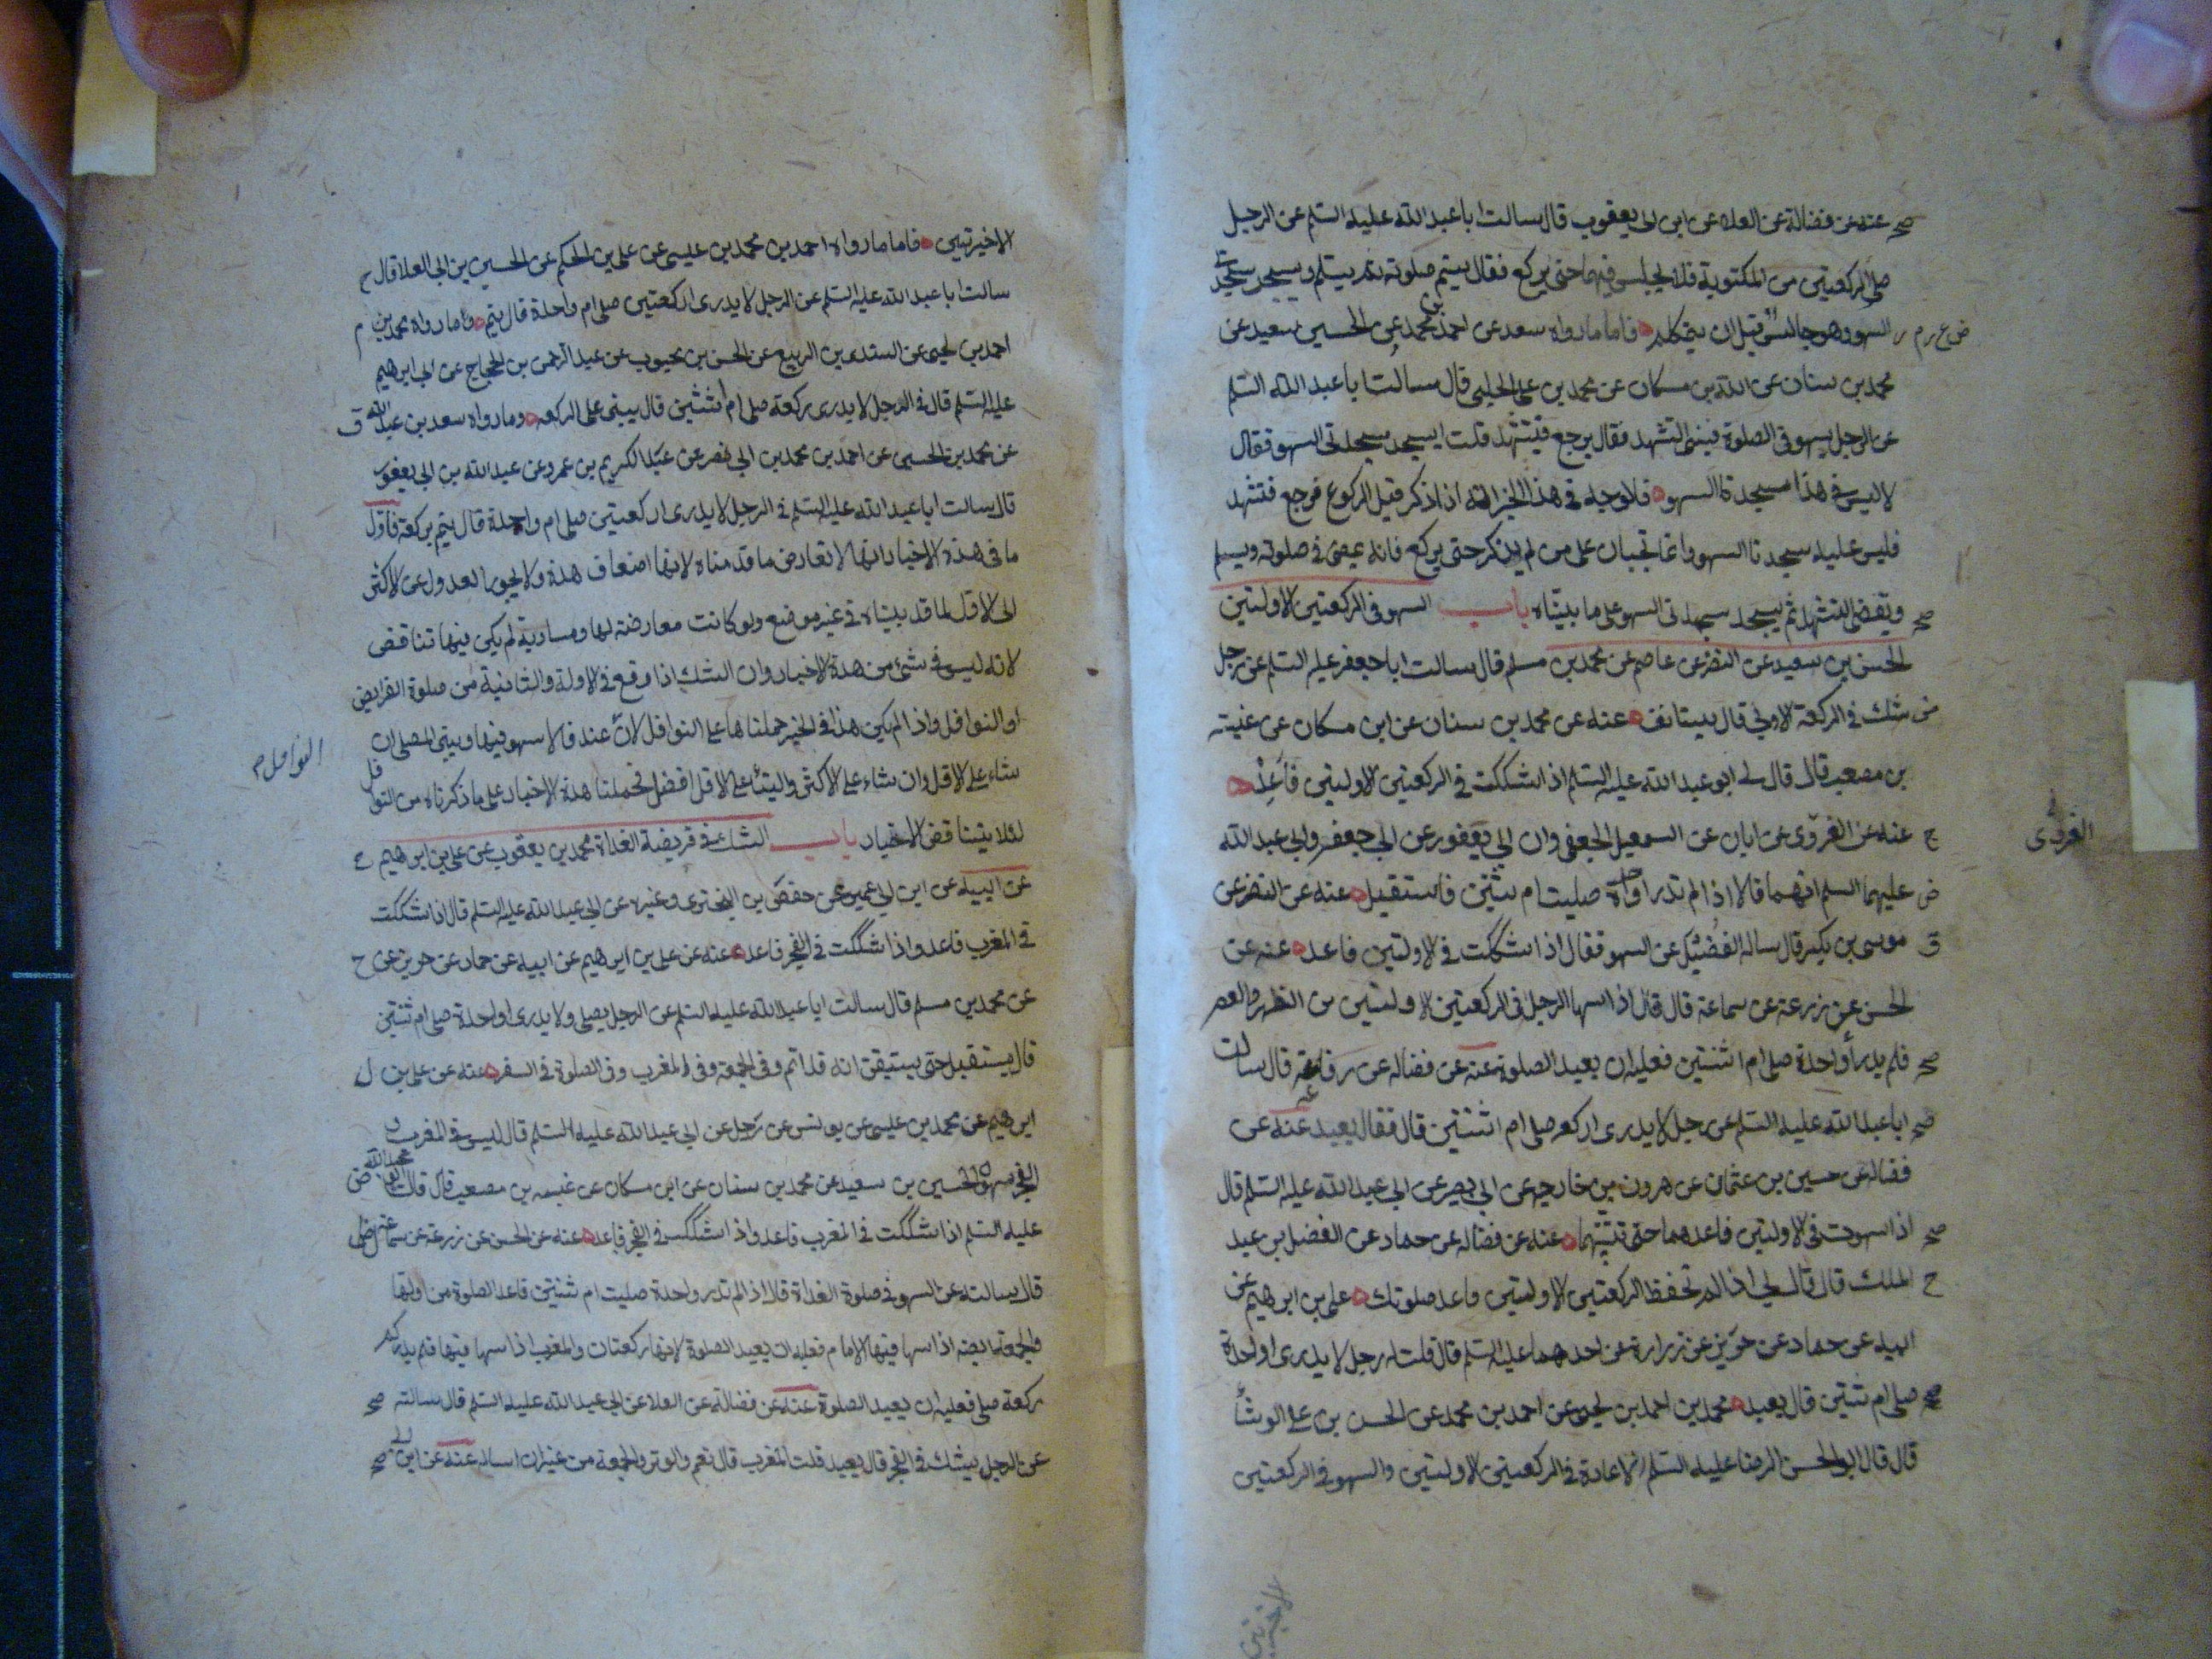 عنه عن فضالة عن العلاء عن ابن ابى يعقوب قال سالت ابا عبد الله عليه السلم عن الرجل
صلى الركعتين من المكتوبة فلا يجلس فيهما حتى يركع فقال يتم صلوته ثم يسلم ويسجد سجدتى
السهو وهو جالس قبل ان يتكلم فاما ما رواه سعد عن احمد بن محمد عن الحسين سعيد عن
محمد بن سنان عن الله بن مسكان عن محمد بن على الحلبى قال سالت ابا عبد الله السلم
عن الرجل يسهو فى الصلوة فينسى التشهد فقال يرجع فيتشهد قلت ايسجد سجدتى السهو فقال
لا ليس فى هذا سجدتا السهو فلا وجه فى هذا الخبر انه اذا ذكر قبل الركوع فرجع فتشهد
فليس عليه سجدتا السهو وانما تجبان على من لم يذكر حتى يركع فانه يمضى فى صلوته ويسلم
ويقضى التشهد ثم يسجد سجدتى السهو على ما بيناه باب السهو فى الركعتين الاولتين
الحسن بن سعيد عن النضر عن عاصم عن محمد بن مسلم قال سالت ابا جعفر عليه السلم عن رجل
شك فى الركعة الاولى قال يستانف عنه عن محمد بن سنان عن ابن مسكان عن عنبسة
بن مصعب قال قال لى ابو عبد الله عليه السلم اذا شككت فى الركعتين الاولتين فاعد
عنه عن الفروى عن ابان عن اسمعيل الجعفى وان ابى يعفور عن ابى جعفر وابى عبد الله
الفروى
عليهما السلم انهما قالا اذا لم تدر اواحدة صليت ام ثنتين فاستقبل عنه عن النضر عن
موسى بن بكير قال ساله الفضيل عن السهو فقال اذا شككت فى الاولتين فاعد عنه عن
الحسن عن زرعة عن سماعة قال قال اذا سها الرجل فى الركعتين الاولتين من الظهر والعصر
فلم يدر أواحدة صلى ام اثنتين فعليه ان يعيد الصلوة عنه عن فضاله عن رفاعة قال سالت
ابا عبد الله عليه السلم عن رجل لا يدرى اركعة صلى ام اثنتين قال فقال يعيد عنه عن
فضاله عن حسين بن عثمان عن هرون بن خارجه عن ابى بصير عن ابى عبد الله عليه السلم قال
اذا سهوت فى الاولتين فاعدهما حتى تثبتهما عنه عن فضاله عن حماد عن الفضل بن عبد
الملك قال قال لى اذا لم تحفظ الركعتين الاولتين فاعد صلوتك على بن ابرهيم عن
ابيه عن حماد عن حريز عن زرارة عن احدهما عليه السلم قال قلت له رجل لا يدرى اواحدة
صلى ام ثنتين قال يعيد محمد بن احمد بن يحيى عن احمد بن محمد عن الحسن بن على الوشأ
قال قال ابو الحسن الرضا عليه السلم الاعادة فى الركعتين الاولتين والسهو فى الركعتين
الاخيرتين
الاخيرتين فاما ما رواه احمد بن محمد بن عيسى عن على بن الحكم عن الحسين بن ابى العلا قال
سالت ابا عبد الله عليه السلم عن الرجل لا يدرى اركعتين صلى ام واحدة قال يتم وما رواه محمد بن
احمد بن يحيى عن السندى بن الربيع عن الحسن بن محبوب عن عبد الرحمن بن الحجاج عن ابى ابرهيم
عليه السلم قال فى الرجل لا يدرى ركعة صلى ام ثنتين قال يبنى على الركعه وما رواه سعد بن عبد الله
عن محمد بن الحسين عن احمد بن محمد بن ابى نصر عن عبد الكريم بن عمرو عن عبد الله بن ابى يعفور
قال سالت ابا عبد الله عليه السلم فى الرجل لا يدرى اركعتين صلى ام واحدة قال يتم بركعة فاول
ما فى هذه الاخبار انها لا تعارض ما قدمناه لانها اضعاف هذه ولا يجوز العدول عن الاكثر
الى الاقل لما قد بيناه فى غير موضع ولو كانت معارضة لها ومساوية لم يكن فيها تناقض
لانه ليس فى شئ من هذه الاخبار وان الشك اذا وقع فى الاولة والثانية من صلوة الفرايض
او النوافل واذا لم يكن هذا فى الخبر حملناها على النوافل لان عندنا لا سهو فيها ويبنى المصلى ان
النوافل م
شاء على الاقل وان شاء على الاكثر والبنأ على الاقل افضل فحملنا هذه الاخبار على ما ذكرناه من النوافل
لئلا يتناقض الاخبار باب الشك فى فريضة الغداة محمد بن يعقوب عن على بن ابرهيم
عن ابيه عن ابن ابى عمير عن حفص بن البخترى وغيره عن ابى عبد الله عليه السلم قال اذا شككت
فى المغرب فاعد واذا شككت فى الفجر فاعد عنه عن على بن ابرهيم عن ابيه عن حماد عن حريز عن
عن محمد بن مسلم قال سالت ابا عبد الله عليه السلم عن الرجل يصلى ولا يدرى اواحدة صلى ام ثنتين
قال يستقبل حتى يستيقن انه قد اتم وفى الجمعة وفى المغرب وفى الصلوة فى السفر عنه عن على بن
ابرهيم عن محمد بن عيسى عن يونس عن رجل عن ابى عبد الله عليه السلم قال ليس فى المغرب و
الفجر سهو الحسين بن سعيد عن محمد بن سنان عن ابن مسكان عن عنبسه بن مصعب قال قال ابو عبد الله
عليه السلم اذا شككت فى المغرب فاعد واذا شككت فى الفجر فاعد عنه عن الحسن عن زرعة عن سماعة
قال سالته عن السهو فى صلوة الغداة قال اذا لم تدر واحدة صليت ام ثنتين فاعد الصلوة من اولها
والجمعة ايضا اذا سها فيها الامام فعليه ان يعيد الصلوة لانها ركعتان والمغرب اذا سها فيها فلم يدر كم
ركعة صلى فعليه ان يعيد الصلوة عنه عن فضالة عن العلا عن ابى عبد الله عليه السلم قال سالته
عن الرجل يشك فى الفجر قال يعيد قلت المغرب قال نعم والوتر والجمعة من غير ان اساله عنه عن ابن ابى